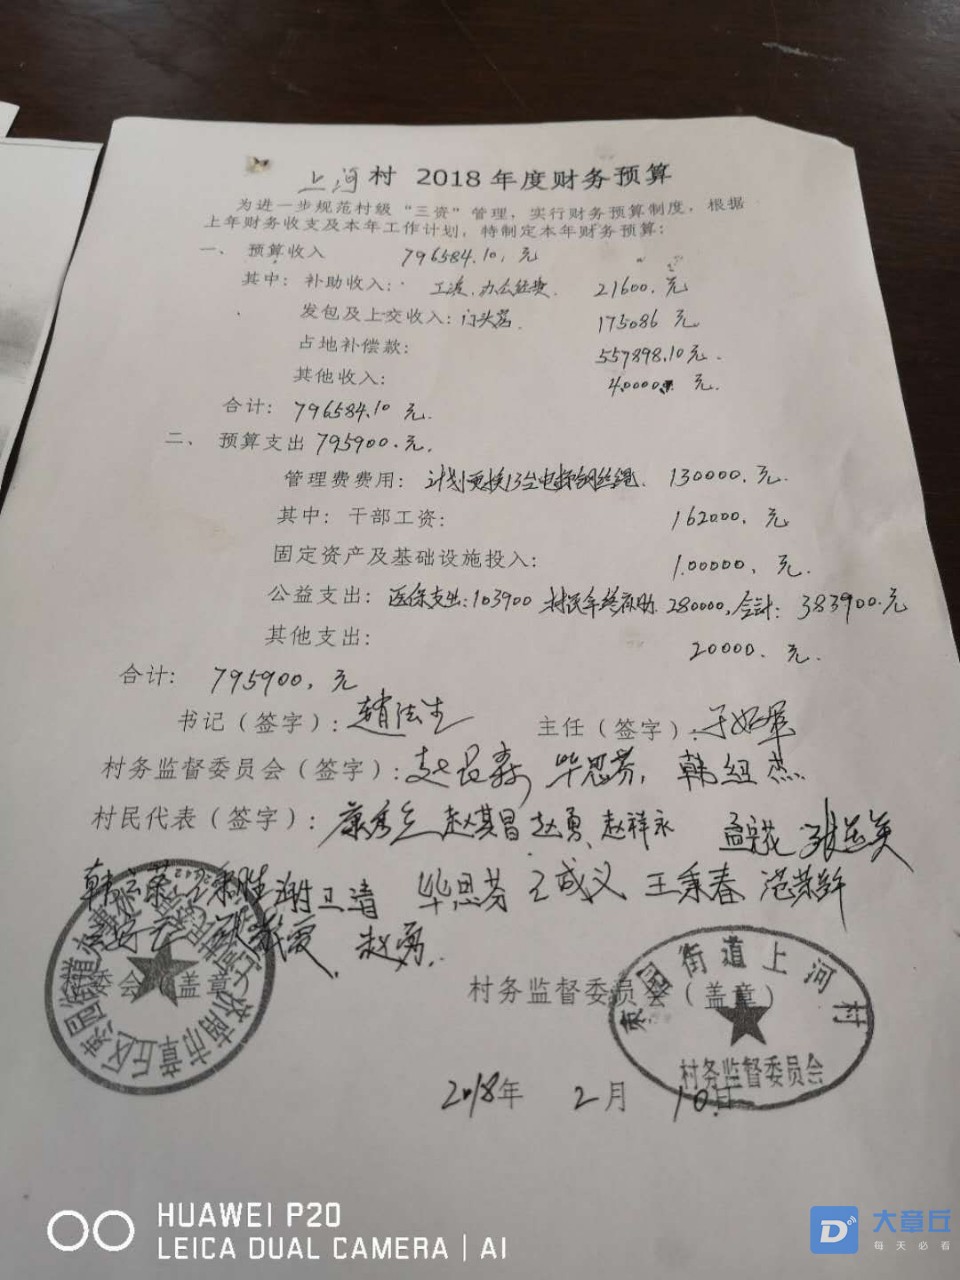 上河村 2018年度财务预算
为进一步规范村级“三资”管理，实行财务预算制度，根据
上年财务收支及本年工作计划，特制定本年财务预算：
一、 预算收入 796584.10，元
其中：补助收入： 工资、办公经费、 21600、元
发包及上交收入：门头房 175086 元
占地补偿款： 557898.10元、
其他收入： 40000 元、
合计： 796584.10 元、
二、 预算支出 795900、元、
管理费费用： 计划更换13台电梯钢丝绳、 130000、元、
其中：干部工资： 162000、元
固定资产及基础设施投入： 100000、元、
公益支出： 医保支出：103900 村民年终补助 280000，合计： 383900、元
其他支出： 20000、元、
合计： 795900，元
书记（签字）：赵法生 主任（签字）：于好军
村务监督委员会（签字）：赵良森 毕思芬， 韩纽杰
村民代表（签字）：康秀兰 赵其昌 赵勇、赵祥永 孟宪花
谢卫清 毕思芬 王成义 王秉春 范荣
赵勇、
委会 盖章
村务监督委员会（盖章）
济南市章丘区 街道
街道上河村
村务监督委员会
2018年 2月 10日
HUAWEI P20
LEICA DUAL CAMERA | AI
大章丘
每天必看